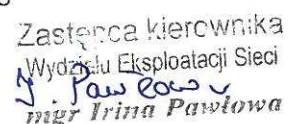 Zastępca kierownika
Wydziału Eksploatacji Sieci
J. Pawłow
mgr Irina Pawłowa